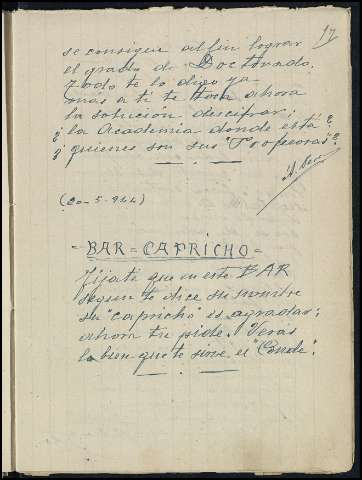 17
se consigue al fin lograr
el grado de Doctorado.
Todo te lo digo ya
más a ti te toca ahora
la solución descifrar;
¿ la Academia donde está?
¿ quienes son sus "Profesoras"?
(20-5-944)
- BAR = CAPRICHO =
Fijate que en este BAR
segun te dice su nombre
su "capricho" es agradar;
ahora tu pide. Veras
lo bien que te sirve el "Conde".